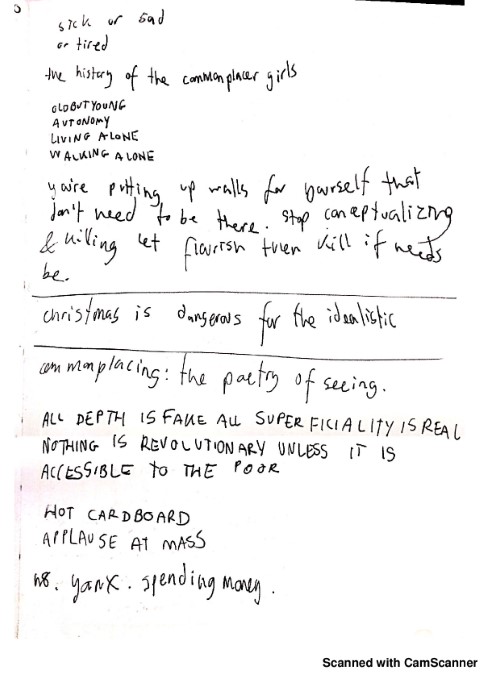 sick or sad
or tired
the history of the commonplacer girls
OLDBUTYOUNG
AUTONOMY
LIVING ALONE
WALKING ALONE
you're putting up walls for yourself that
don't need to be there. stop conceptualizing
& killing let flourish then kill if needs
be.
christmas is dangerous for the idealistic
commonplacing: the poetry of seeing.
ALL DEPTH IS FAKE ALL SUPERFICIALITY IS REAL
NOTHING IS REVOLUTIONARY UNLESS IT IS
ACCESSIBLE TO THE POOR
HOT CARDBOARD
APPLAUSE AT MASS
spending money.
Scanned with CamScanner